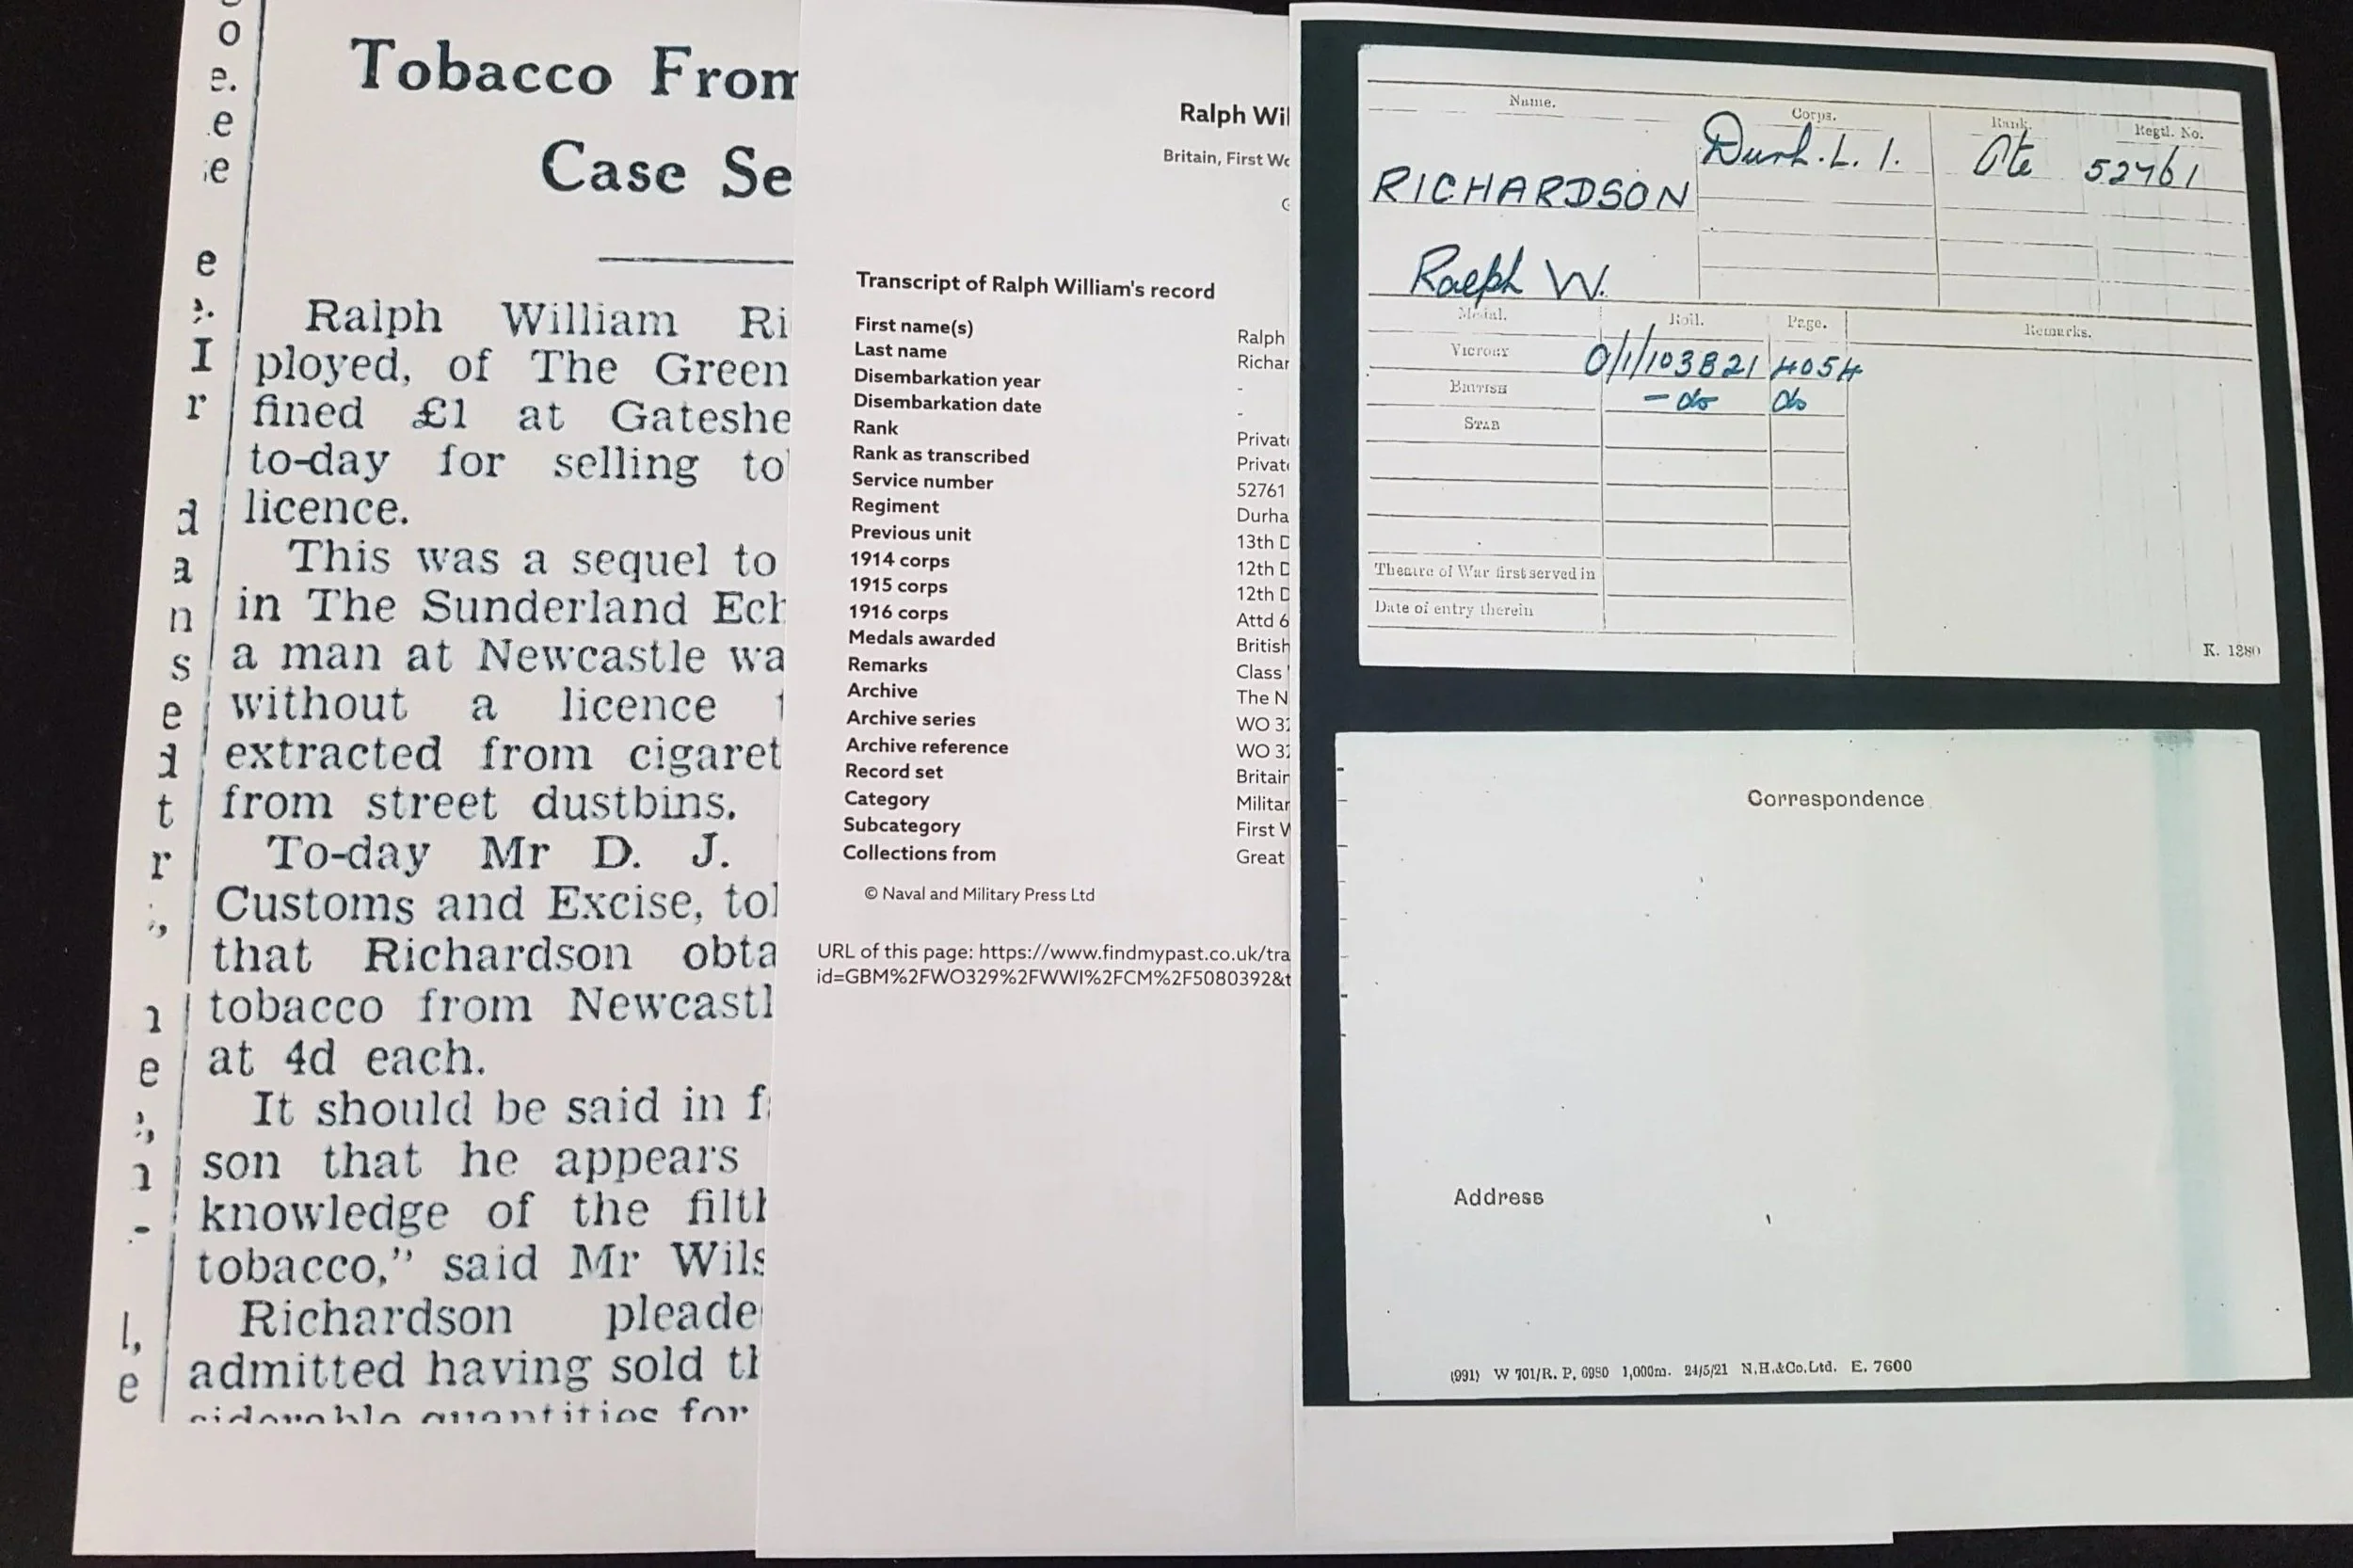 o
e.
e
e
e
I
r
d
a
n
s
e
d
t
r
n
e
l,
e
Tobacco From
Case Se
Ralph William Ri
ployed, of The Green
fined £1 at Gateshe
to-day for selling to
licence.
This was a sequel to
in The Sunderland Ech
a man at Newcastle wa
without a licence
extracted from cigaret
from street dustbins.
To-day Mr D. J.
Customs and Excise, tol
that Richardson obta
tobacco from Newcastl
at 4d each.
It should be said in f
son that he appears
knowledge of the filth
tobacco,” said Mr Wils
Richardson pleade
admitted having sold th
siderable quantities for
Ralph Wil
Britain, First Wo
Transcript of Ralph William's record
First name(s) Ralph
Last name Richar
Disembarkation year -
Disembarkation date -
Rank Privat
Rank as transcribed Privat
Service number 52761
Regiment Durha
Previous unit 13th D
1914 corps 12th D
1915 corps 12th D
1916 corps Attd 6
Medals awarded British
Remarks Class
Archive The N
Archive series WO 32
Archive reference WO 32
Record set Britain
Category Militar
Subcategory First W
Collections from Great
© Naval and Military Press Ltd
URL of this page: https://www.findmypast.co.uk/tra
id=GBM%2FWO329%2FWWI%2FCM%2F5080392&t
Name. Corps. Rank. Regtl. No.
RICHARDSON Durh. L. I. Pte 52761
Ralph W.
Medal. Roll. Page. Remarks.
VICTORY O/1/103B21 4054
BRITISH - do do
STAR
Theatre of War first served in
Date of entry therein
K. 1380
Correspondence
Address
(991) W 701/R. P. 6980 1,000m. 24/5/21 N.H.&Co.Ltd. E. 7600